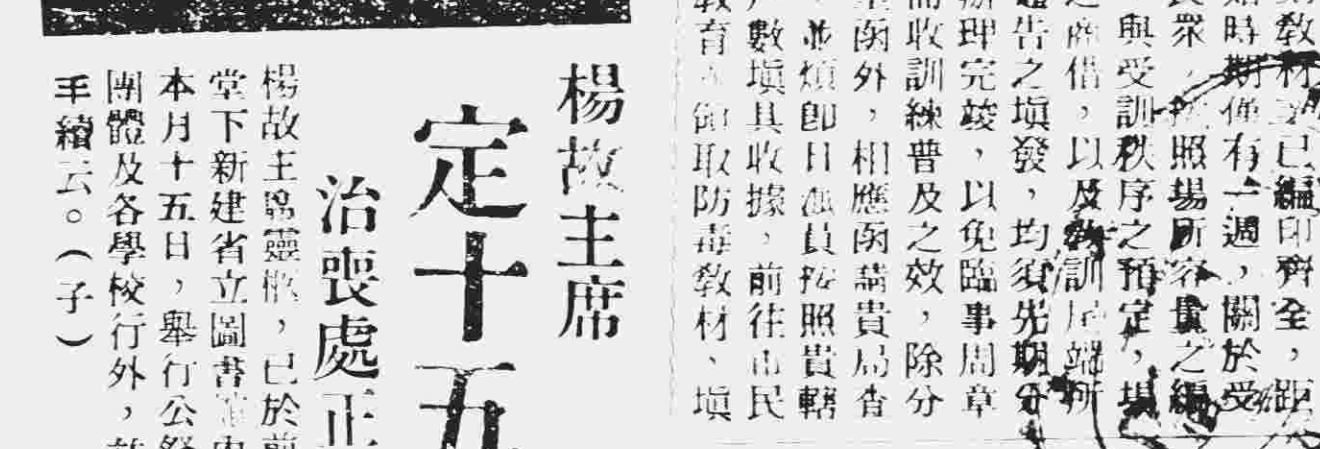 教材 已編印齊全，距
時期僅有一週，關於受
民眾， 照場所容量之編
與受訓秩序之預定，場
之商借，以及教訓 端所
告之塡發，均須先期分
辦理完竣，以免臨事周章
而收訓練普及之效，除分
函外，相應函請貴局查
，並煩卽日派員按照貴轄
戶數塡具收據，前往市民
敎育 領取防毒敎材、塡
楊故主席
定十五
治喪處正
楊故主席靈櫬，已於前
堂下新建省立圖書館內
本月十五日，舉行公祭
團體及各學校行外，
手續云。（子）